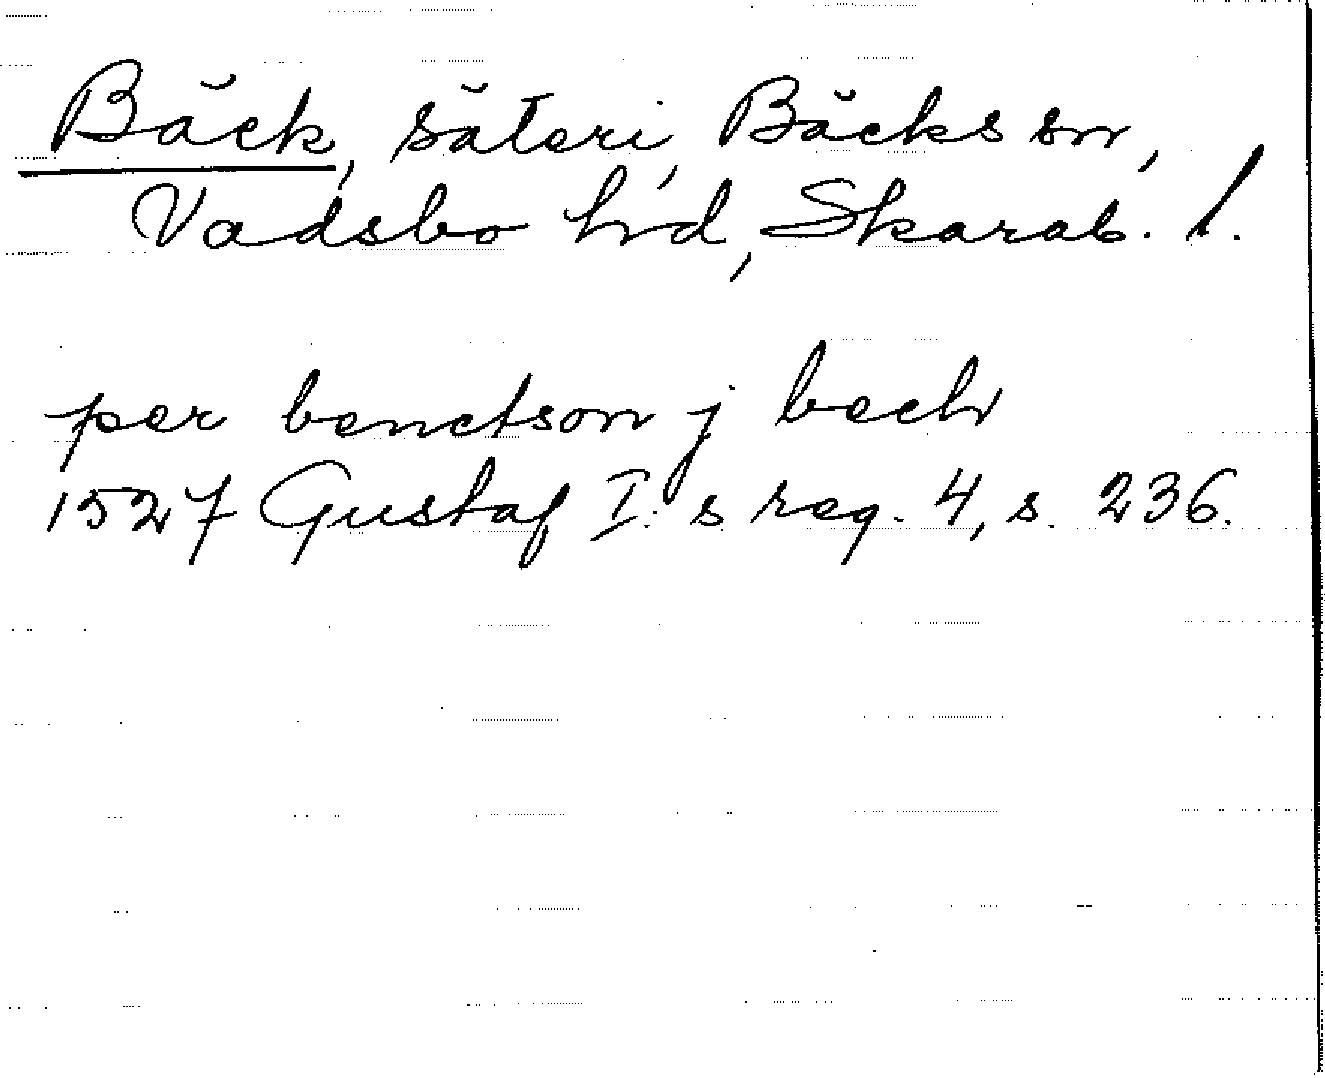 Bäck, säteri, Bäcks sn,
Vadsbo hd, Skarab. l.
per benctson j bech
1527 Gustaf I:s reg. 4, s. 236.